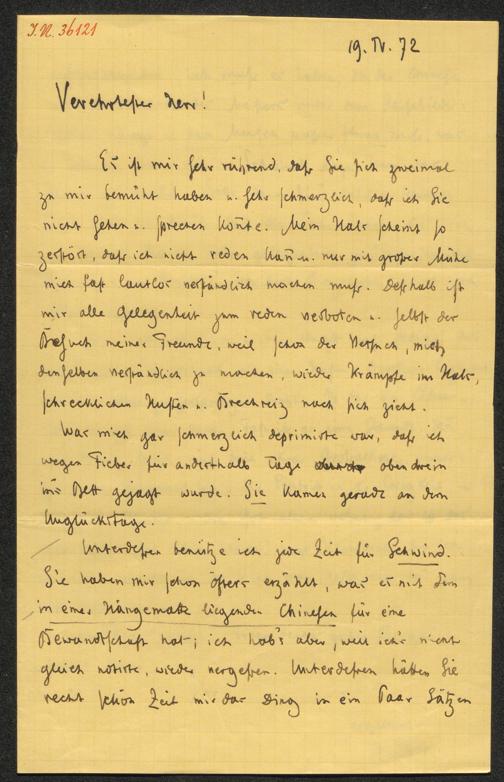 I.N. 36121
19. IV. 72
Verehrtester Herr!
Es ist mir sehr rührend, daß Sie sich zweimal
zu mir bemüht haben u. sehr schmerzlich, daß ich Sie
nicht sehen u. sprechen konnte. Mein Hals scheint so
zerstört, daß ich nicht reden kann u. nur mit großer Mühe
mich fast lautlos verständlich machen muß. Deßhalb ist
mir alle Gelegenheit zum reden verboten u. selbst der
Besuch meiner Freunde, weil schon der Versuch, mich
denselben verständlich zu machen, wieder Krämpfe im Hals,
schrecklichen Husten u. Brechreiz nach sich zieht.
Was mich gar schmerzlich deprimirte war, daß ich
wegen Fieber für anderthalb Tage obendrein
ins Bett gejagt wurde. Sie kamen gerade an dem
Unglückstage.
Unterdessen benütze ich jede Zeit für Schwind.
Sie haben mir schon öfters erzählt, was es mit dem
in einer Hängematte liegenden Chinesen für eine
Bewandtschaft hat; ich hab's aber, weil ich's nicht
gleich notirte, wieder vergessen. Unterdessen hätten Sie
recht schön Zeit mir das Ding in ein Paar Sätzen